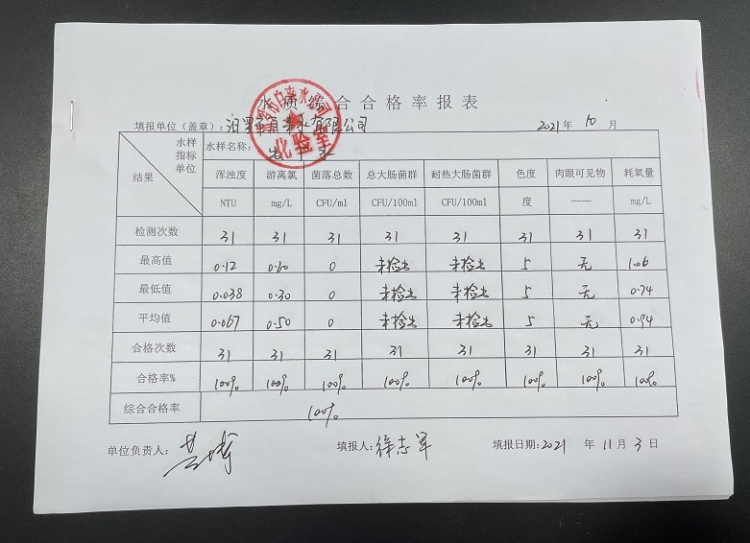 水质综合合格率报表
填报单位(盖章):汨罗市自来水有限公司 2021年10月
化验室
水样 指标 单位 结果 水样名称: 出厂水
浑浊度 游离氯 菌落总数 总大肠菌群 耐热大肠菌群 色度 肉眼可见物 耗氧量
NTU mg/L CFU/ml CFU/100ml CFU/100ml 度 —— mg/L
检测次数 31 31 31 31 31 31 31 31
最高值 0.12 0.60 0 未检出 未检出 5 无 1.06
最低值 0.038 0.30 0 未检出 未检出 5 无 0.74
平均值 0.067 0.50 0 未检出 未检出 5 无 0.94
合格次数 31 31 31 31 31 31 31 31
合格率% 100% 100% 100% 100% 100% 100% 100% 100%
综合合格率 100%
单位负责人: 填报人:徐志军 填报日期:2021 年 11月 3日